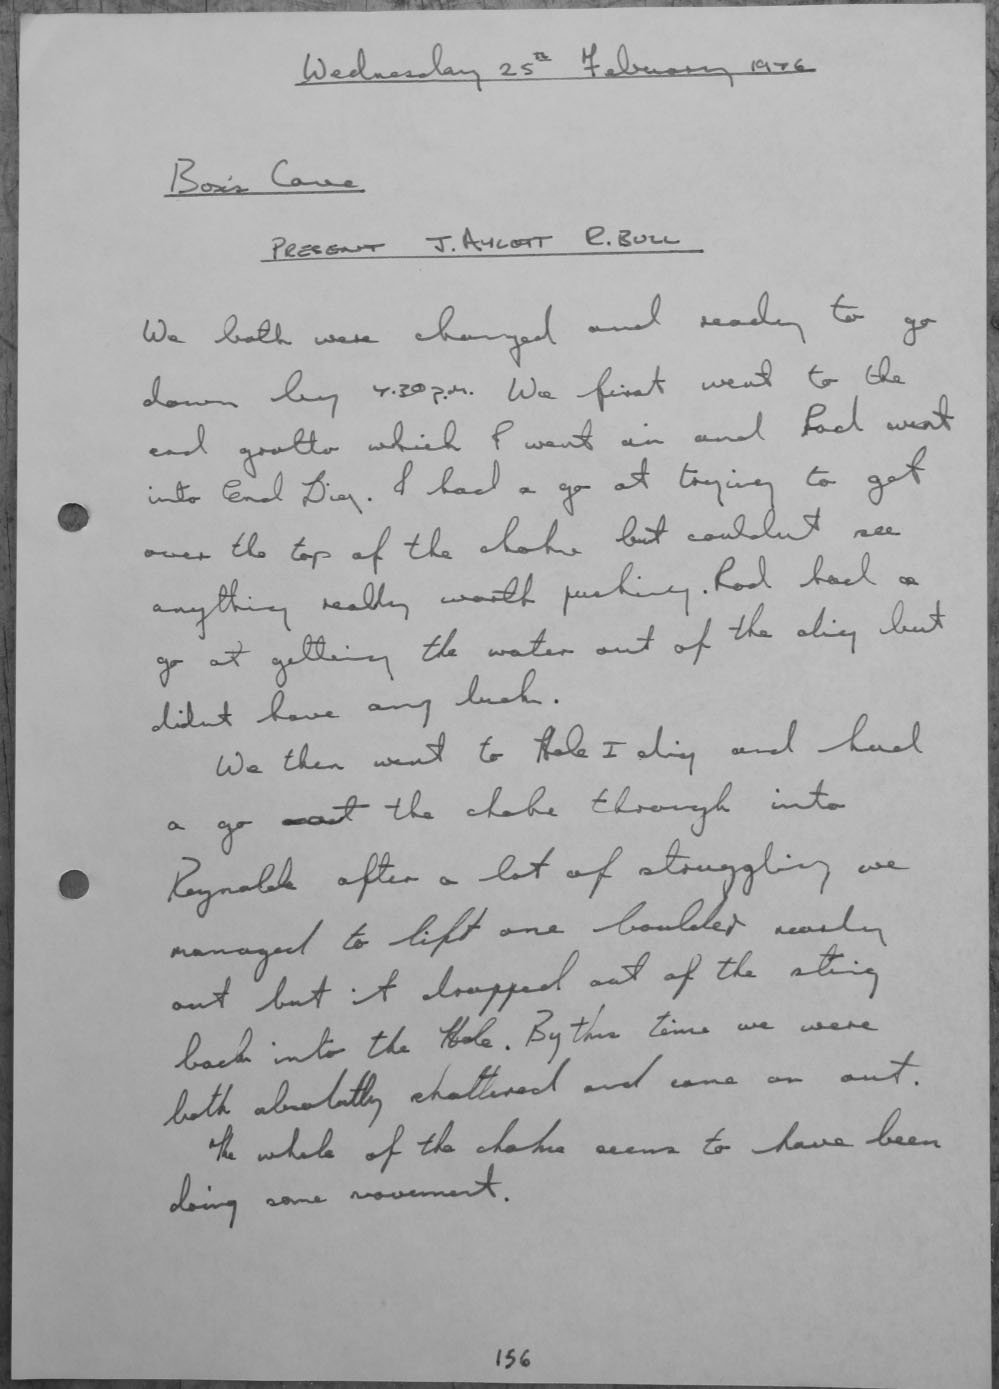 Wednesday 25th February 1976
Box's Cave
PRESENT J. AYLOTT R. BULL
We both were changed and ready to go
down by 4.30 p.m. We first went to the
end grotto which I went in and Rod went
into End Dig. I had a go at trying to get
over the top of the choke but couldnt see
anything really worth pushing. Rod had a
go at getting the water out of the dig but
didnt have any luck.
We then went to Hole I dig and had
a go at the choke through into
Reynolds after a lot of struggling we
managed to lift one boulder nearly
out but it dropped out of the sting
back into the Hole. By this time we were
both absolutly shattered and came on out.
The whole of the choke seems to have been
doing some movement.
156